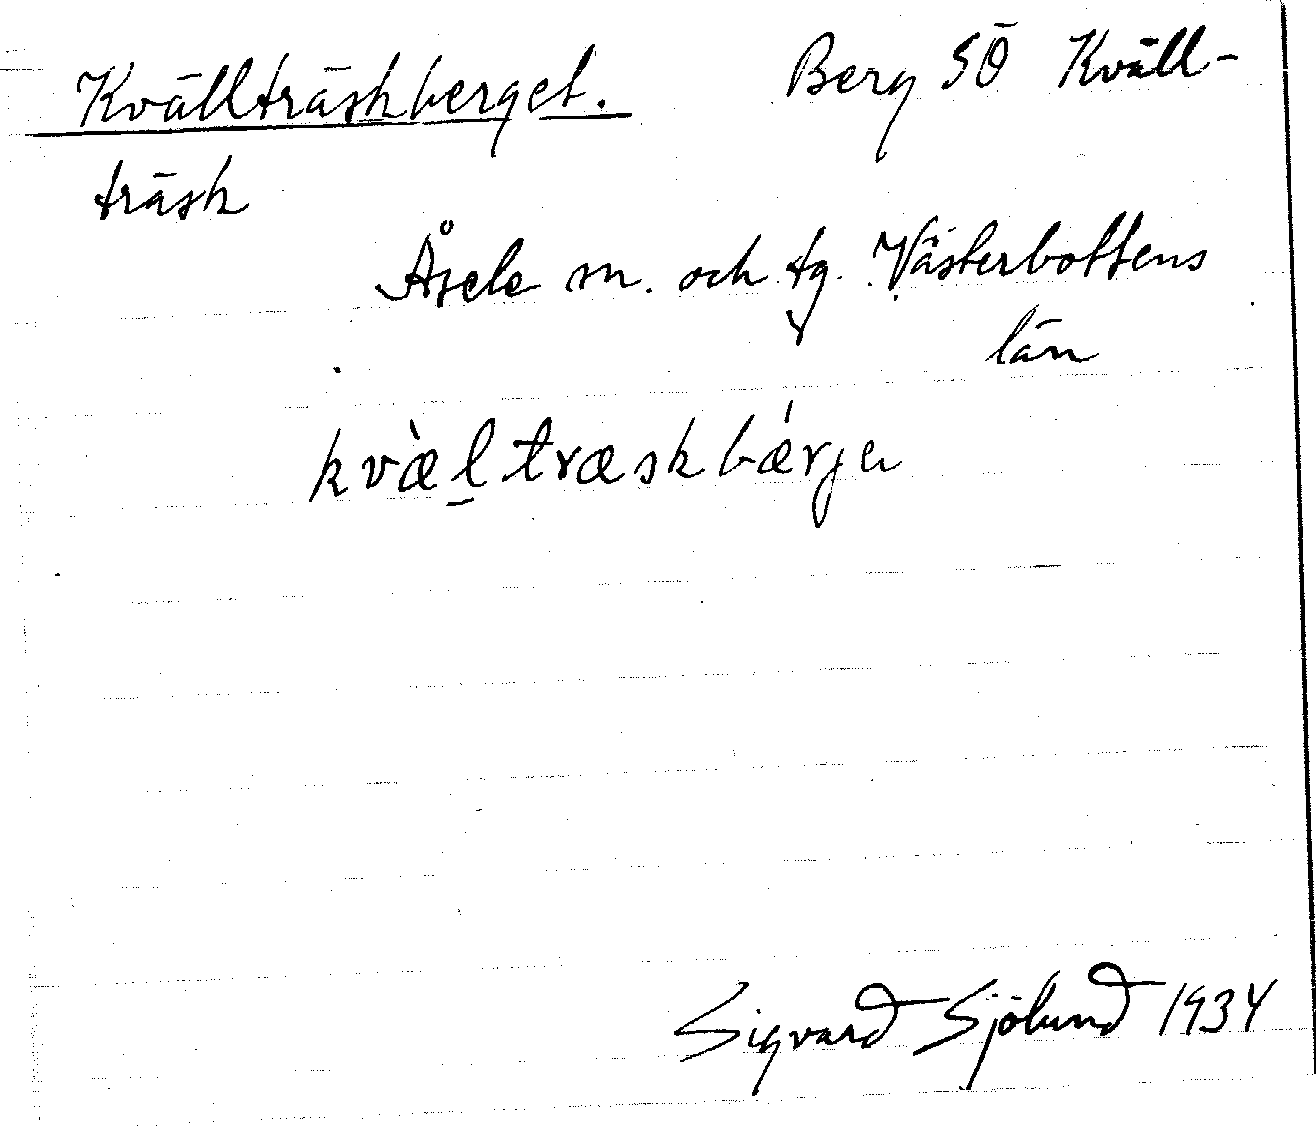 Kvällträskberget. Berg SÖ Kväll-
träsk
Åsele sn. och tg. Västerbottens
län
kvæ̀l̠træskbǽrjə
Sigvard Sjölund 1934